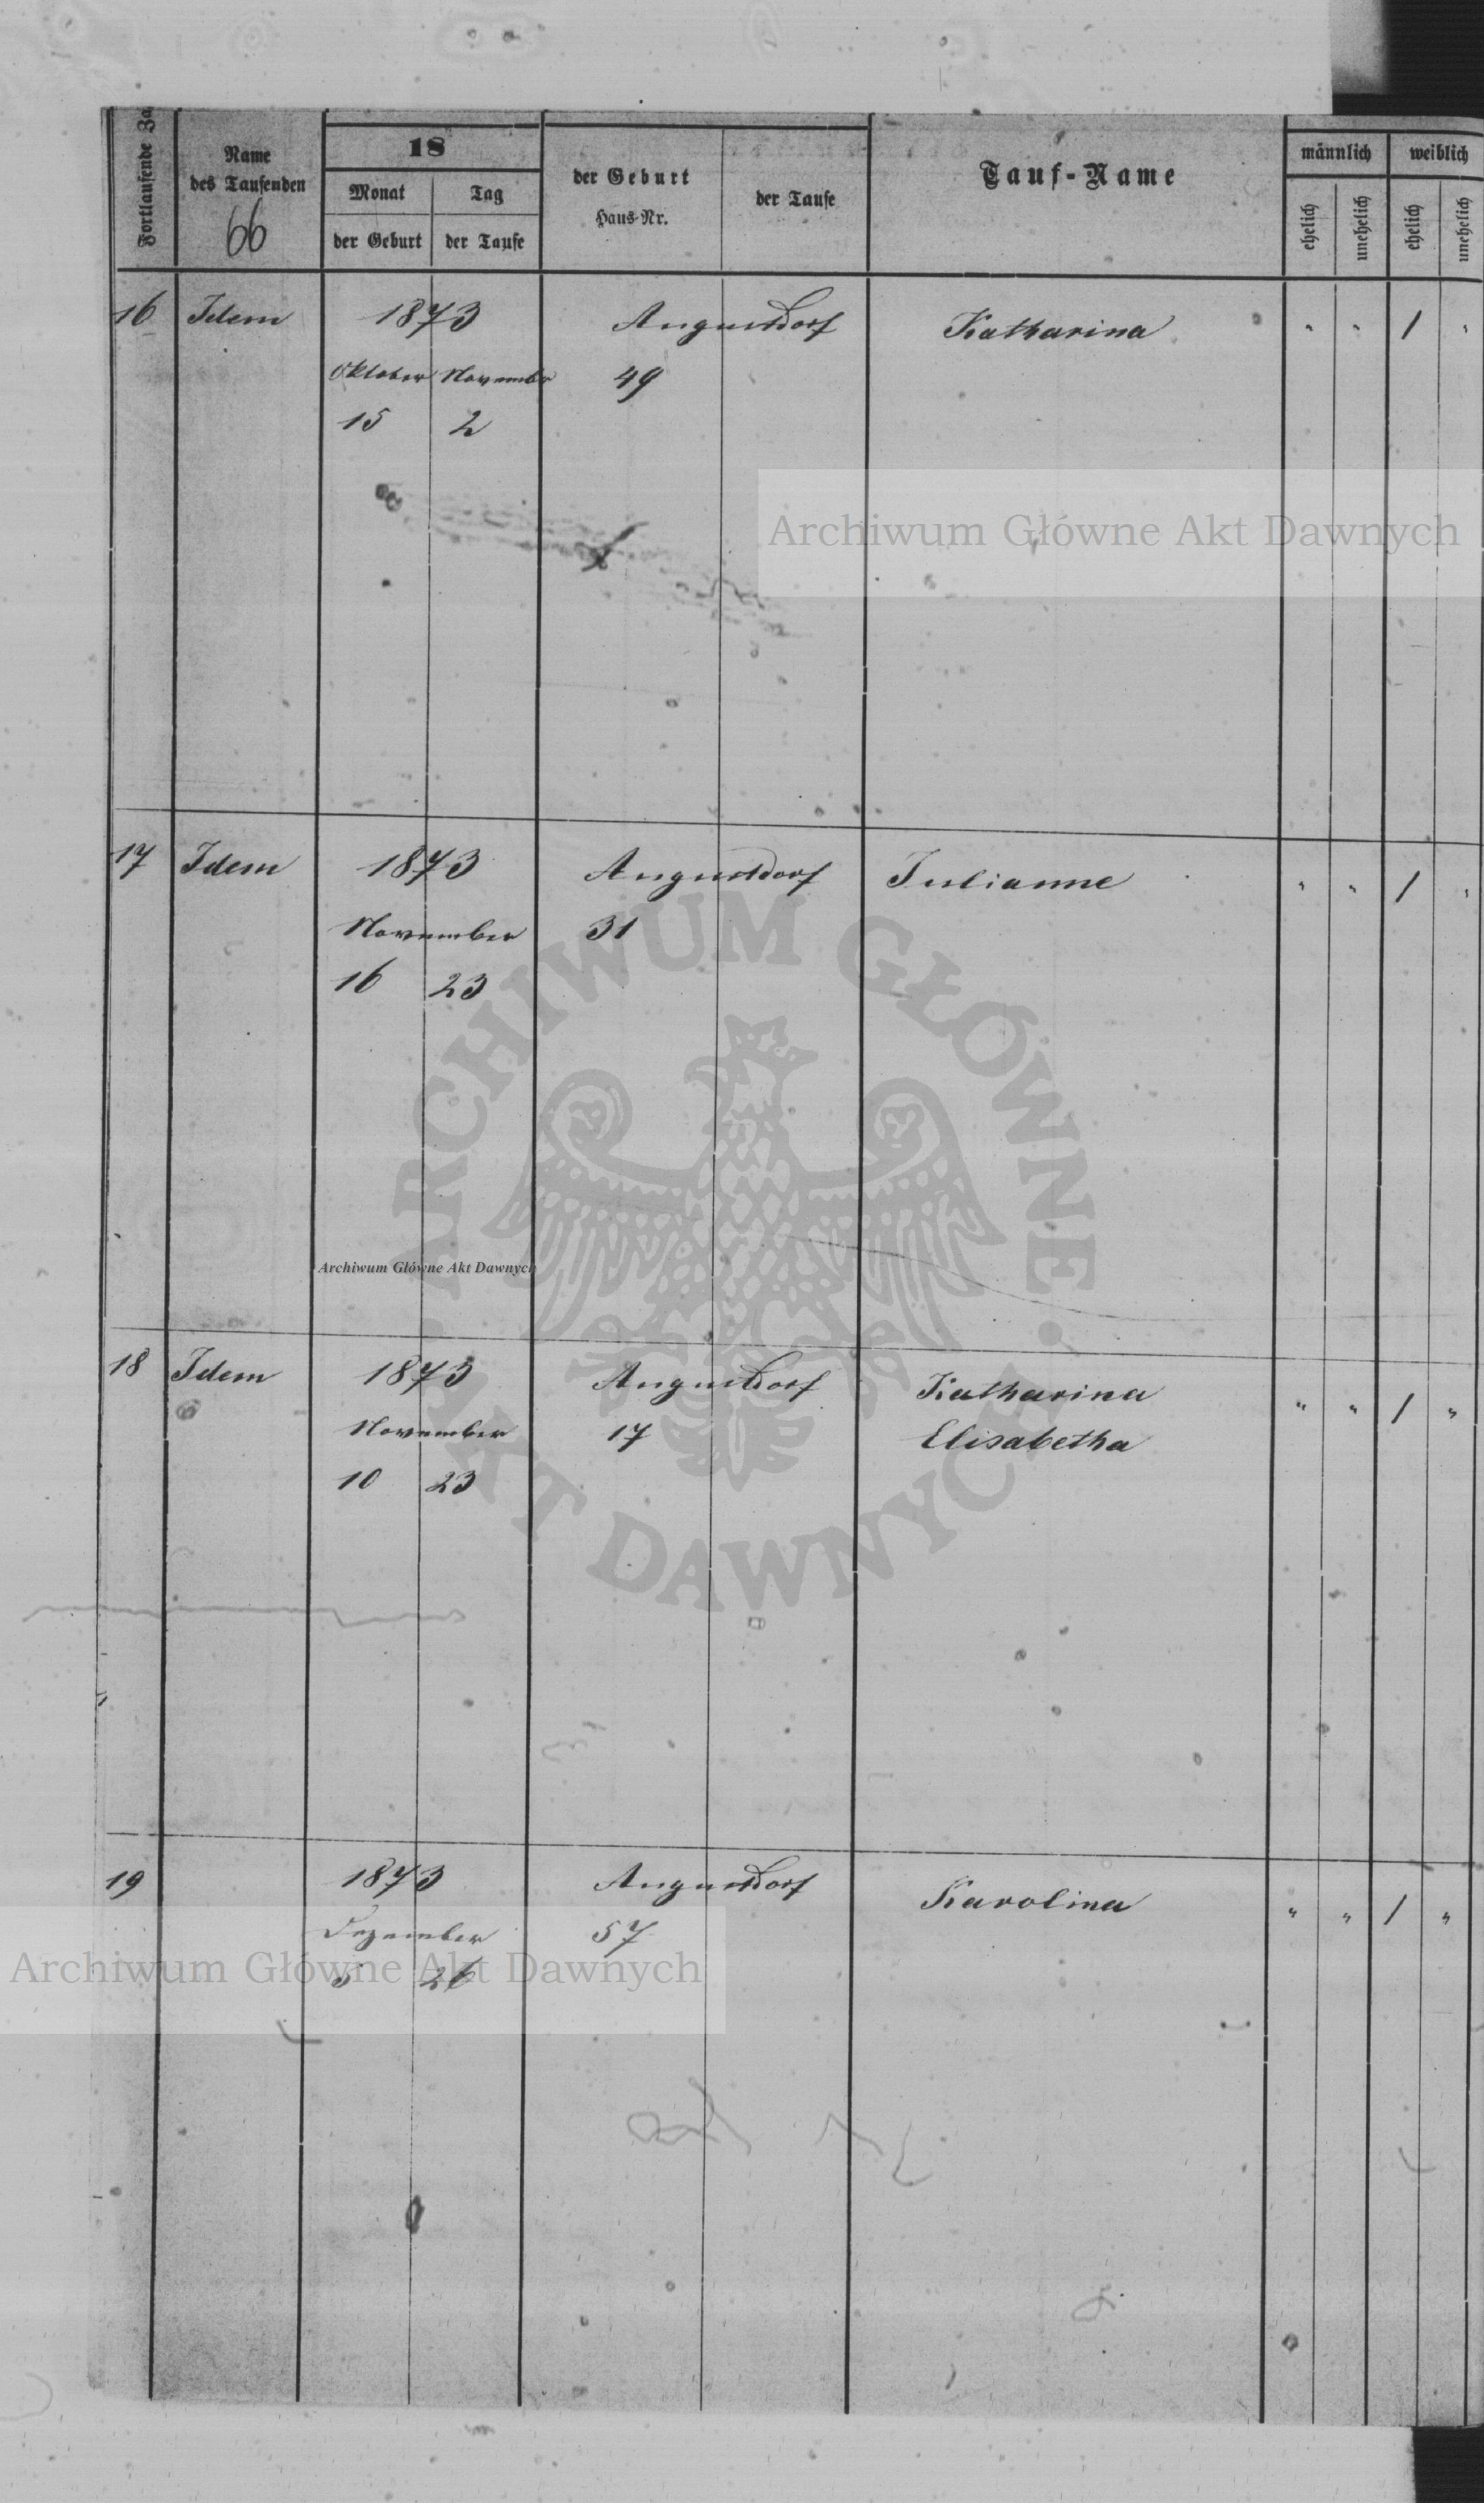 Fortlaufende Za
Name
des Taufenden
66
18
Monat
Tag
der Geburt
der Taufe
der Geburt
Haus-Nr.
der Taufe
Tauf-Name
männlich
weiblich
ehelich
unehelich
ehelich
unehelich
16 Idem 1873 Augustdorf Katharina " " / "
Oktober November 49
15 2
Archiwum Główne Akt Dawnych
17 Idem 1873 Augustdorf Julianne " " / "
November 31
16 23
ARCHIWUM GŁÓWNE AKT DAWNYCH
Archiwum Główne Akt Dawnych
18 Idem 1873 Augustdorf Katharina " " / "
November 17 Elisabetha
10 23
19 1873 Augustdorf Karolina " " / "
Dezember 57
5 26
Archiwum Główne Akt Dawnych